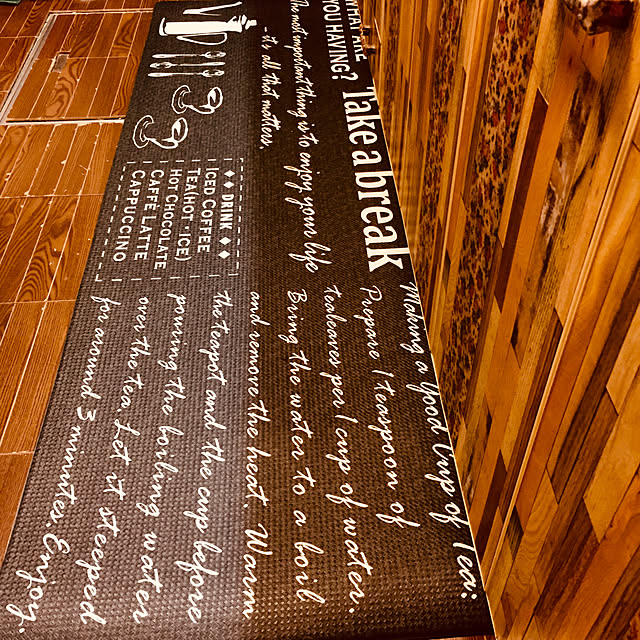 WHAT ARE
YOU HAVING?
Take a break
The most important thing is to enjoy your life
- it's all that matters.
DRINK
ICED COFFEE
TEA(HOT · ICE)
HOT CHOCOLATE
CAFFE LATTE
CAPPUCCINO
Making a Good Cup of Tea:
Prepare 1 teaspoon of
tealeaves per 1 cup of water.
Bring the water to a boil
and remove the heat. Warm
the teapot and the cup before
pouring the boiling water
over the tea. Let it steeped
for around 3 minutes. Enjoy.